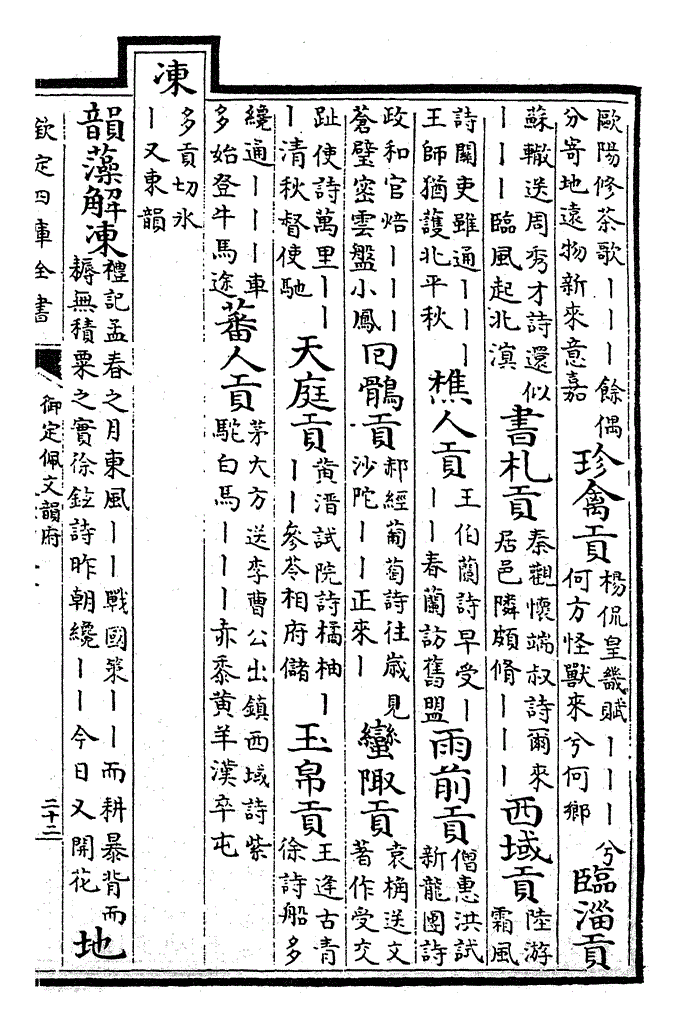 歐陽修茶歌｜｜｜餘偶
分寄地遠物新來意嘉
珍禽貢
楊侃皇畿賦｜｜｜兮
何方怪獸來兮何鄉
臨淄貢
蘇轍送周秀才詩還似
｜｜｜臨風起北溟
書札貢
秦觀懷端叔詩爾來
居邑隣頗脩｜｜｜
西域貢
陸游
霜風
詩關吏雖通｜｜｜
王師猶護北平秋
樵人貢
王伯蘭詩早受｜
｜｜春蘭訪舊盟
雨前貢
僧惠洪試
新龍團詩
政和官焙｜｜｜
蒼璧密雲盤小鳳
回鶻貢
郝經葡萄詩往歲見
沙陀｜｜正來｜
蠻陬貢
袁桷送文
著作受交
趾使詩萬里｜｜
｜清秋督使馳
天庭貢
黄溍試院詩橘柚｜
｜｜參苓相府儲
玉帛貢
王逢古青
徐詩船多
繞通｜｜｜車
多始登牛馬途
蕃人貢
茅大方送李曹公出鎮西域詩紫
駝白馬｜｜｜赤黍黄羊漢卒屯
凍
多貢切氷
｜又東韻
韻藻解凍
禮記孟春之月東風｜｜戰國策｜｜而耕暴背而
耨無積粟之實徐鉉詩昨朝纔｜｜今日又開花
地
欽定四庫全書
御定佩文韻府
二十二